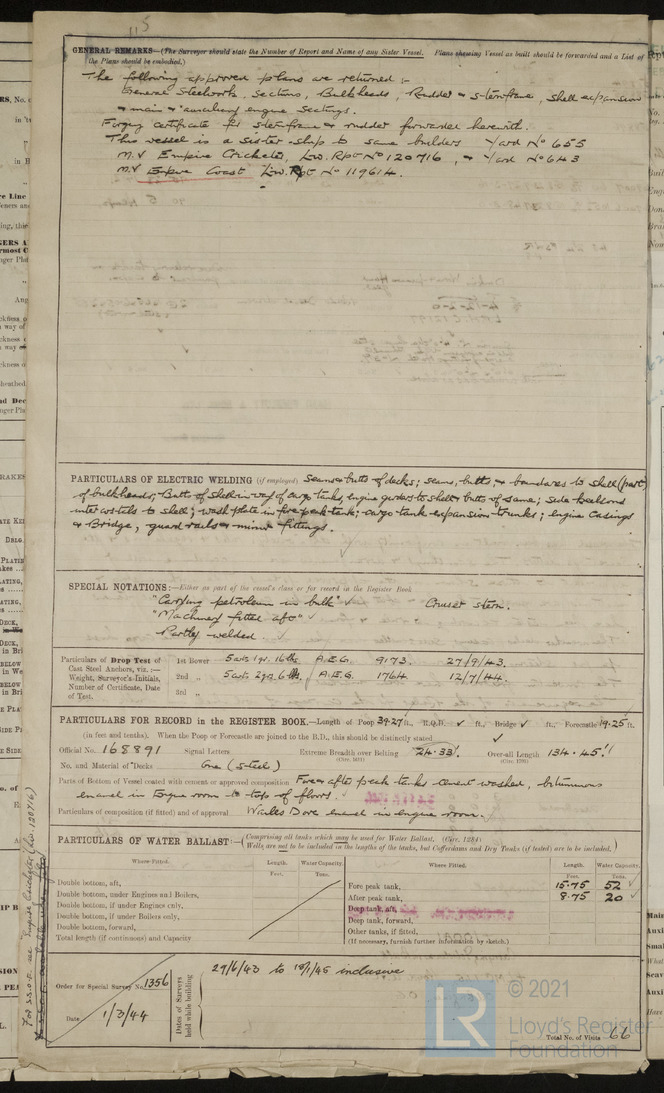 115
GENERAL REMARKS—(The Surveyor should state the Number of Report and Name of any Sister Vessel. Plans showing Vessel as built should be forwarded and a List of
the Plans should be embodied.)
The following approved plans are returned :-
General Steelwork, Sections, Bulkheads, Rudder & sternframe, shell expansion
& main & auxiliary engine seatings.
Forging certificate for sternframe & rudder forwarded herewith.
This vessel is a sister-ship to same builders Yard No 655
M.V Empire Cricketer, Low. Rpt No 120716, & Yard No 643
M.V Empire Coast Low. Rpt No 119614.
PARTICULARS OF ELECTRIC WELDING (if employed) Seams & butts of decks; seams, butts, & boundaries to shell (part)
of bulkheads; Butts of shell in way of cargo tanks, engine girders to shell & butts of same; side keelsons
intercostals to shell; wash plate in fore peak tank; cargo tank expansion trunks; engine casings
& Bridge, guard rails & minor fittings.
SPECIAL NOTATIONS:—Either as part of the vessel's class or for record in the Register Book
"Carrying petroleum in bulk" ✓ Cruiser stern.
"Machinery fitted aft" ✓
Partly welded.
Particulars of Drop Test of
Cast Steel Anchors, viz. :—
Weight, Surveyor's Initials,
Number of Certificate, Date
of Test.
1st Bower 5 cwts 1 qr. 16 lbs. A.E.G. 9173. 27/9/43.
2nd „ 5 cwts. 2 qrs 6 lbs. A.E.G. 1764. 12/7/44.
3rd „
PARTICULARS FOR RECORD in the REGISTER BOOK.—Length of Poop 39.27 ft., R.Q.D. ✓ ft., Bridge ✓ ft., Forecastle 19.25 ft.
(in feet and tenths). When the Poop or Forecastle are joined to the B.D., this should be distinctly stated ✓
Official No. 168891 Signal Letters Extreme Breadth over Belting 24.33' Over-all Length 134.45'
No. and Material of Decks One (Steel)
Parts of Bottom of Vessel coated with cement or approved composition Fore & after peak tanks cement washed, bitumous
enamel in Engine room to top of floors.
Particulars of composition (if fitted) and of approval Wailes Dove enamel in engine room.
PARTICULARS OF WATER BALLAST:—(Comprising all tanks which may be used for Water Ballast, (Circ. 1284)
Wells are not to be included in the lengths of the tanks, but Cofferdams and Dry Tanks (if tested) are to be included.)
Where Fitted. Length. Water Capacity.
Feet. Tons.
Double bottom, aft,
Double bottom, under Engines and Boilers,
Double bottom, if under Engines only,
Double bottom, if under Boilers only,
Double bottom, forward,
Total length (if continuous) and Capacity
Where Fitted. Length. Water Capacity.
Feet. Tons.
Fore peak tank, 15.75 52 ✓
After peak tank, 8.75 20 ✓
Deep tank, aft,
Deep tank, forward,
Other tanks, if fitted,
(If necessary, furnish further information by sketch.)
Order for Special Survey No. 1356
Date 1/3/44
Dates of Surveys
held while building
29/6/43 to 19/1/45 inclusive
Total No. of Visits 66
© 2021
LR
Lloyd's Register
Foundation